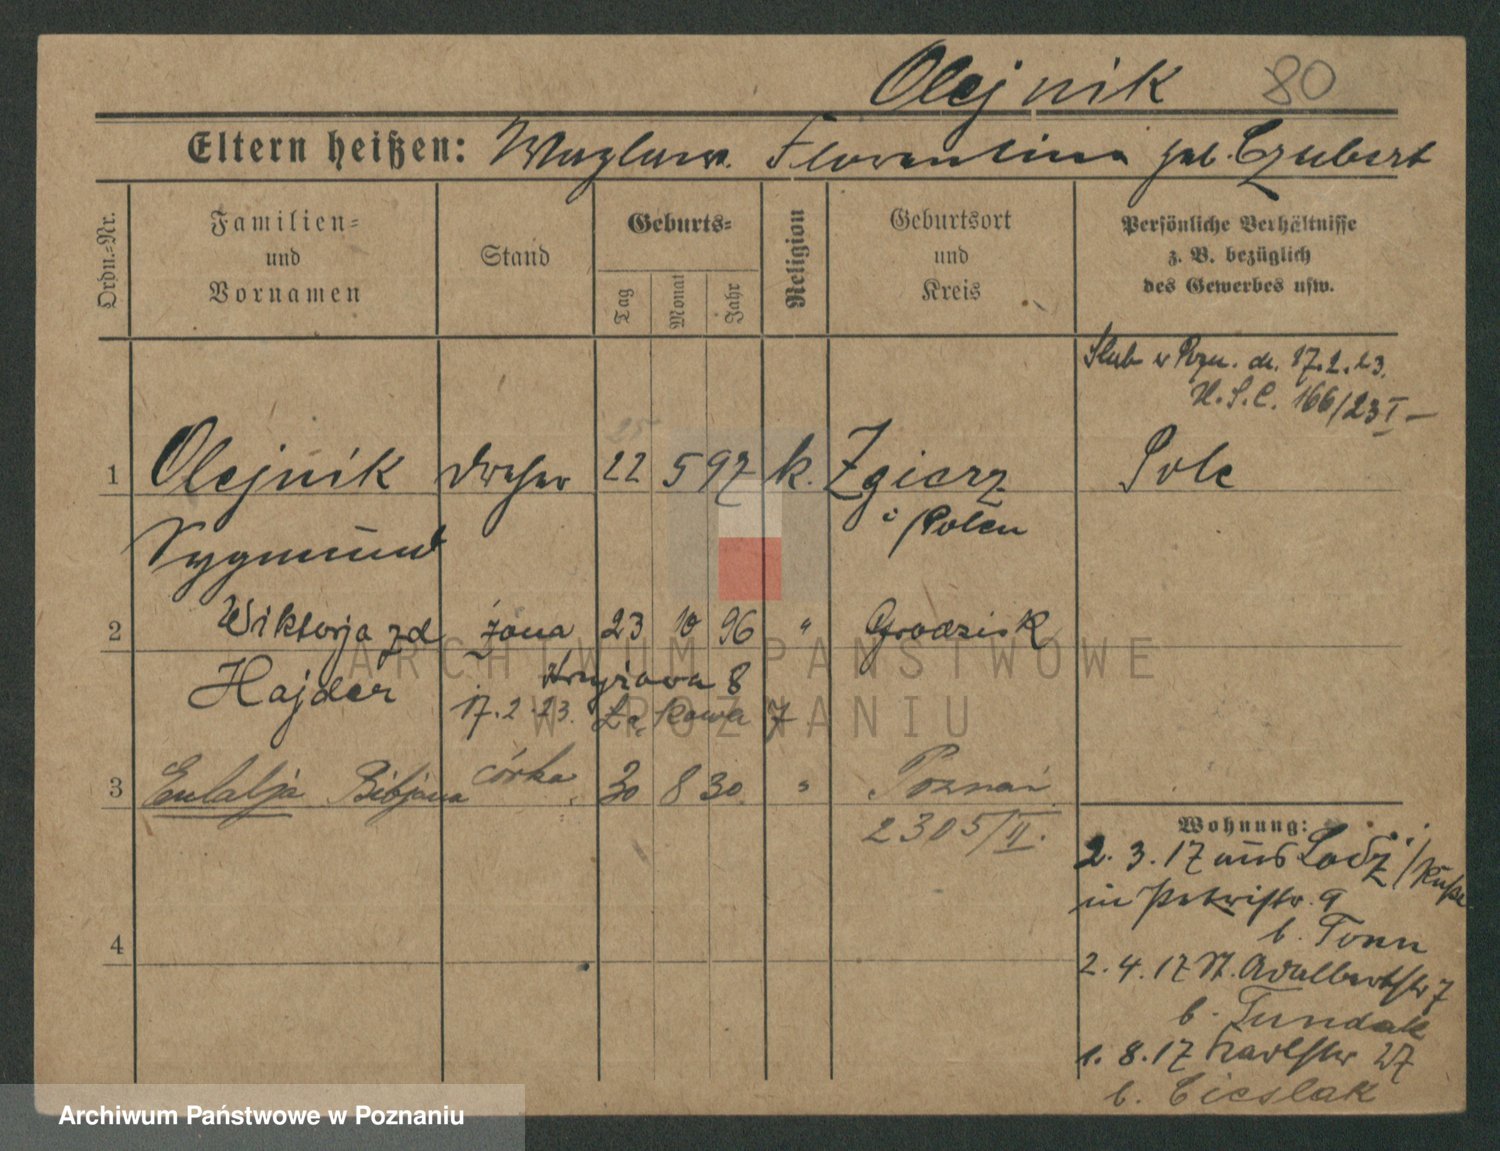 Olejnik 80
Eltern heißen: Waclaw. Florentina geb. Czubert
Ordn.=Nr.
Familien=
und
Vornamen
Stand
Geburts=
Tag
Monat
Jahr
Religion
Geburtsort
und
Kreis
Persönliche Verhältnisse
z. B. bezüglich
des Gewerbes usw.
Slub w Pozn. dn. 17.2.23.
U.S.C. 166/23 I
25
1 Olejnik Dreher 22 5 97 k. Zgierz Pole
i/Polen
Sygmund
2 Wiktorja zd żona 23 10 96 " Grodzisk
Hajder
Kryżowa 8
17.2.23. Łąkowa 7
3 Eulalja Bibjana córka 30 8 30 " Poznań
2305/II.
Wohnung:
2.3.17 aus Lodz /Rußl
in Petristr. 9
b. Tonn
2.4.17 St. Adalbertstr 7
b. Tundak
1.8.17 Karlstr 27
b. Cieslak
4
ARCHIWUM PAŃSTWOWE
W POZNANIU
Archiwum Państwowe w Poznaniu